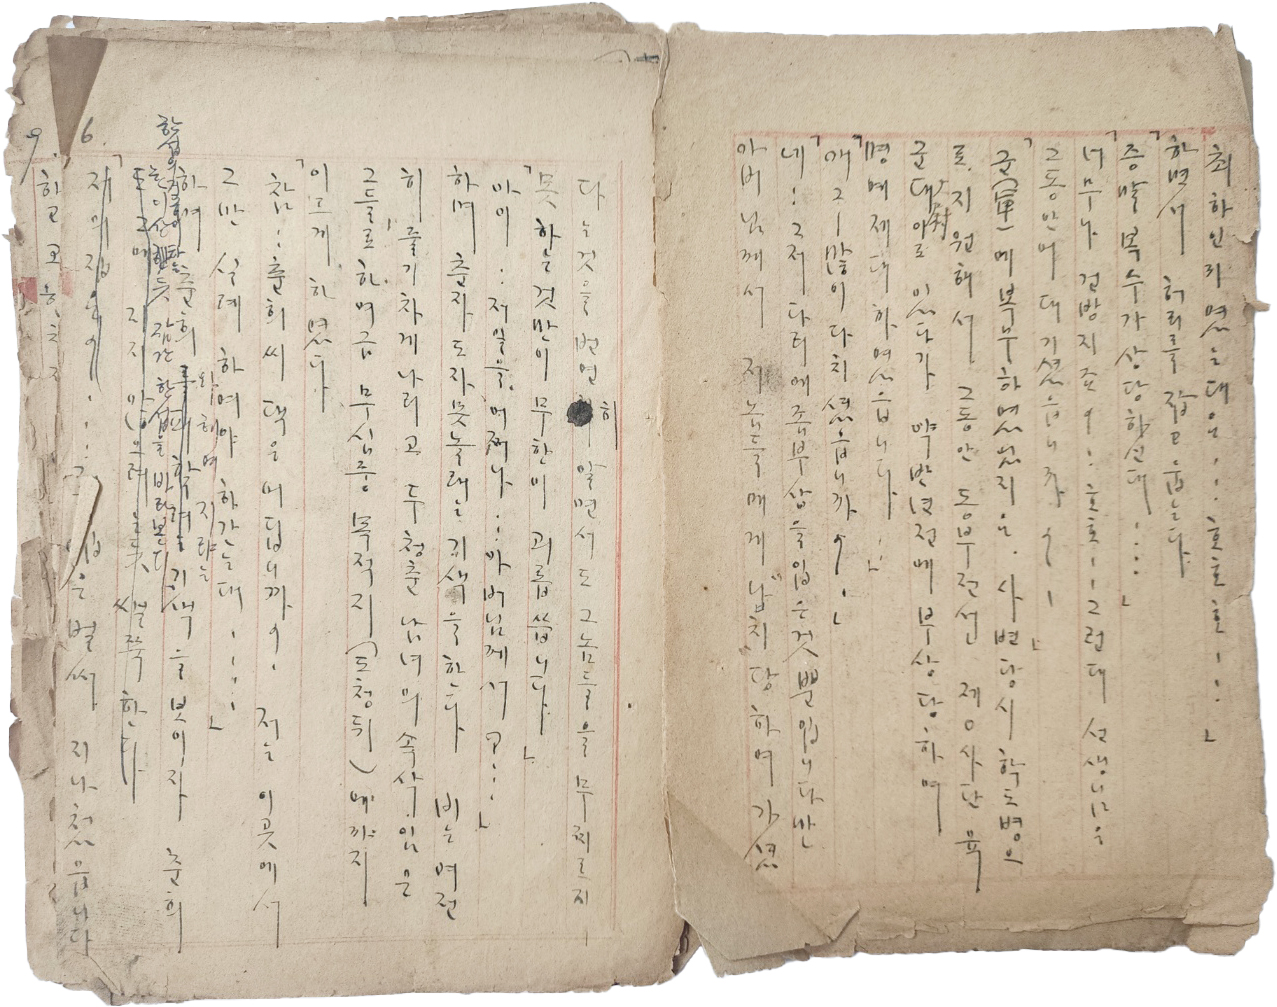 최 하인 리 였는대요, : : 호호 호 ㅣ : : 」
하면서 허리를 잡고 웃는다
「증말 복수가 상당하신대 : : : 」
「너무나 건방지죠 ? : 호호 : ㅣ 그런데 선생님은
그동안 어대 기셨읍니까 ? ㅣ 」
「군(軍)에 복무하였었지요. 사변당시 학도병으
로 지원해서 그동안 동부전선 제 상사단 육
군대 있다가 약 반년전에 부상당하여
명예제대 하였읍니다 : : 」
「얘그ㅣ 많이 다치셨읍니까 ? ㅣ 」
「네 : 그저 다리에 좀 부상을 입은것 뿐입니다만
아버님께서 저놈들에게 납치 당하여 가셨
다는것을 번연히 알면서도 그놈들을 무찌르지
못하는것만이 무한이 괴롭씁니다 」
「아이 : 저일을 어쩌나 : 아버님께서 고 : : : 」
하며 춘자도 자못놀래는 기색을한다 비는 여전
히 줄기차게 나리고 두 청춘 남녀의 속삭임은
그들로하여금 무심중 목적지(도청뒤)에까지
이르게 하였다
「참 : : 춘희씨 댁은 어딥니까 ? 저는 이곳에서
그만 실례 하여야 하갔는대 : : : : 」
하며 춘희 기색을 보이자 춘희
와 헤여지랴는
한섭을 바라본다
지지 않으려 는 쌜쭉 한다
「저의집은 ? : : : 그 집은 벌써 지나첬읍니다
하고
6.
9.